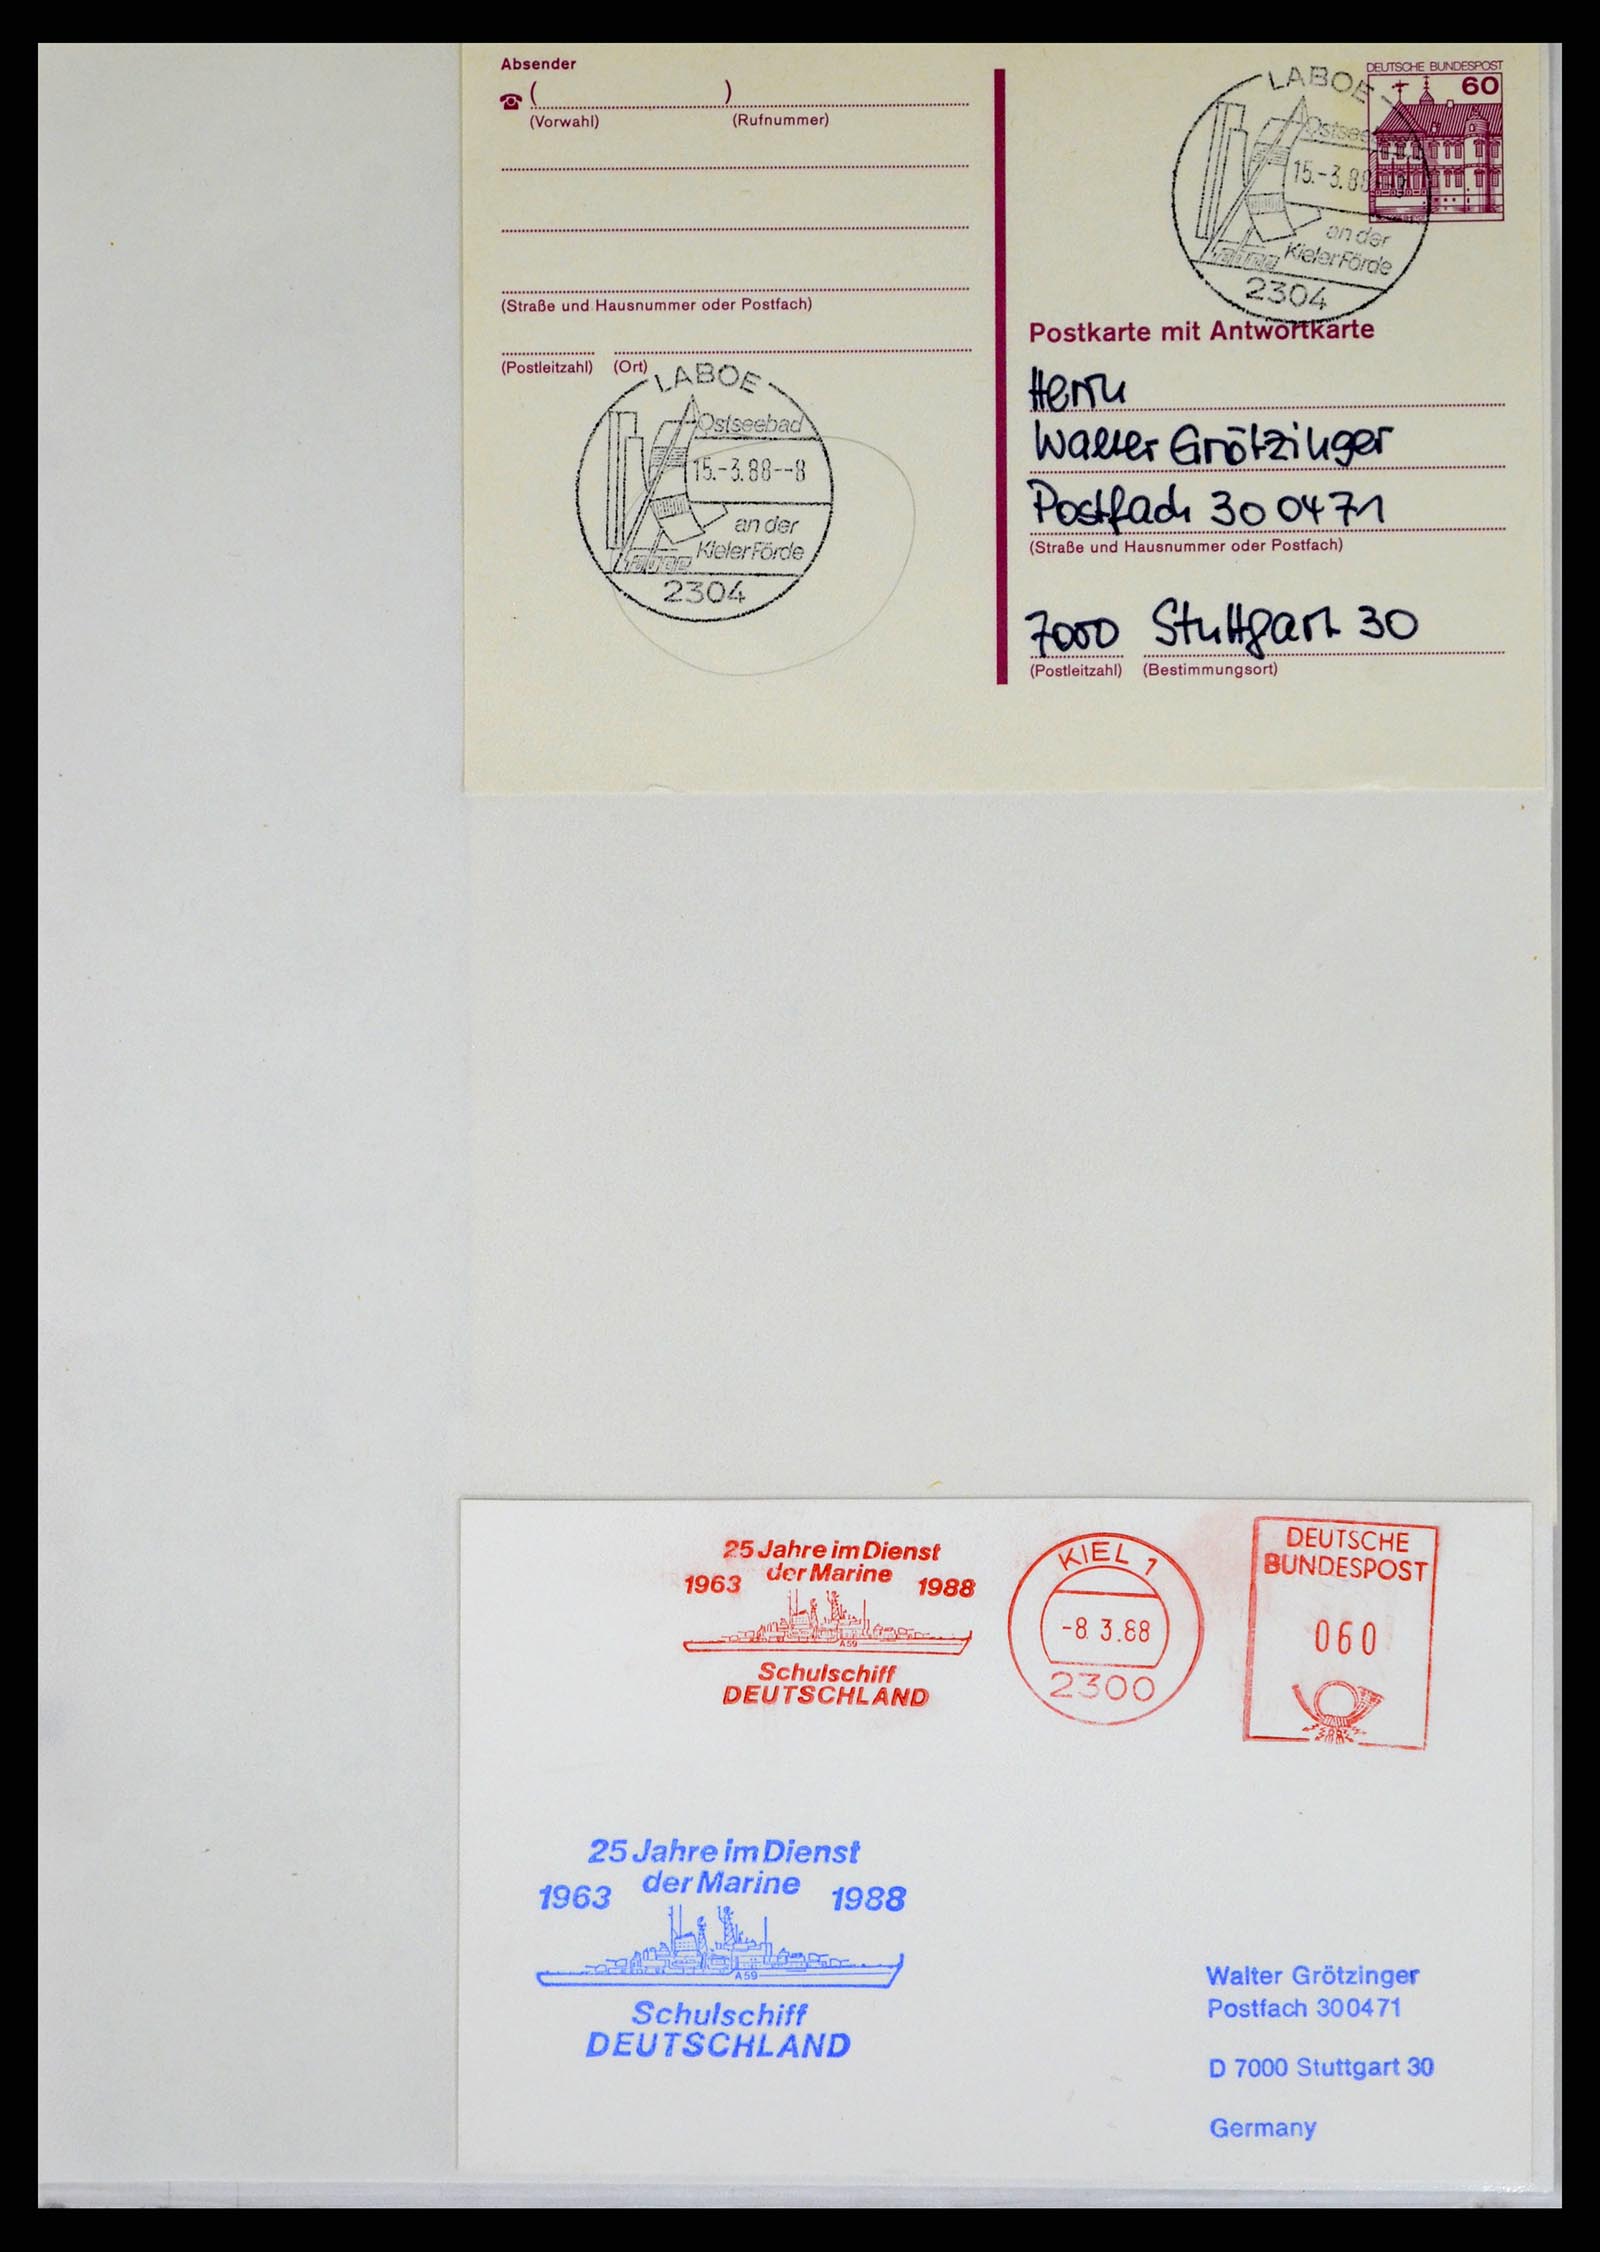 Absender
( )
(Vorwahl) (Rufnummer)
(Straße und Hausnummer oder Postfach)
(Postleitzahl) (Ort)
LABOE
Ostseebad
15.-3.88--8
an der
Kieler Förde
2304
DEUTSCHE BUNDESPOST
60
LABOE
Ostsee
15.-3.88
an der
Kieler Förde
2304
Postkarte mit Antwortkarte
Herrn
Walter Grötzinger
Postfach 30 04 71
(Straße und Hausnummer oder Postfach)
7000 Stuttgart 30
(Postleitzahl) (Bestimmungsort)
25 Jahre im Dienst
der Marine
1963 1988
A59
Schulschiff
DEUTSCHLAND
KIEL 1
-8. 3.88
2300
DEUTSCHE
BUNDESPOST
060
25 Jahre im Dienst
der Marine
1963 1988
A59
Schulschiff
DEUTSCHLAND
Walter Grötzinger
Postfach 300471
D 7000 Stuttgart 30
Germany